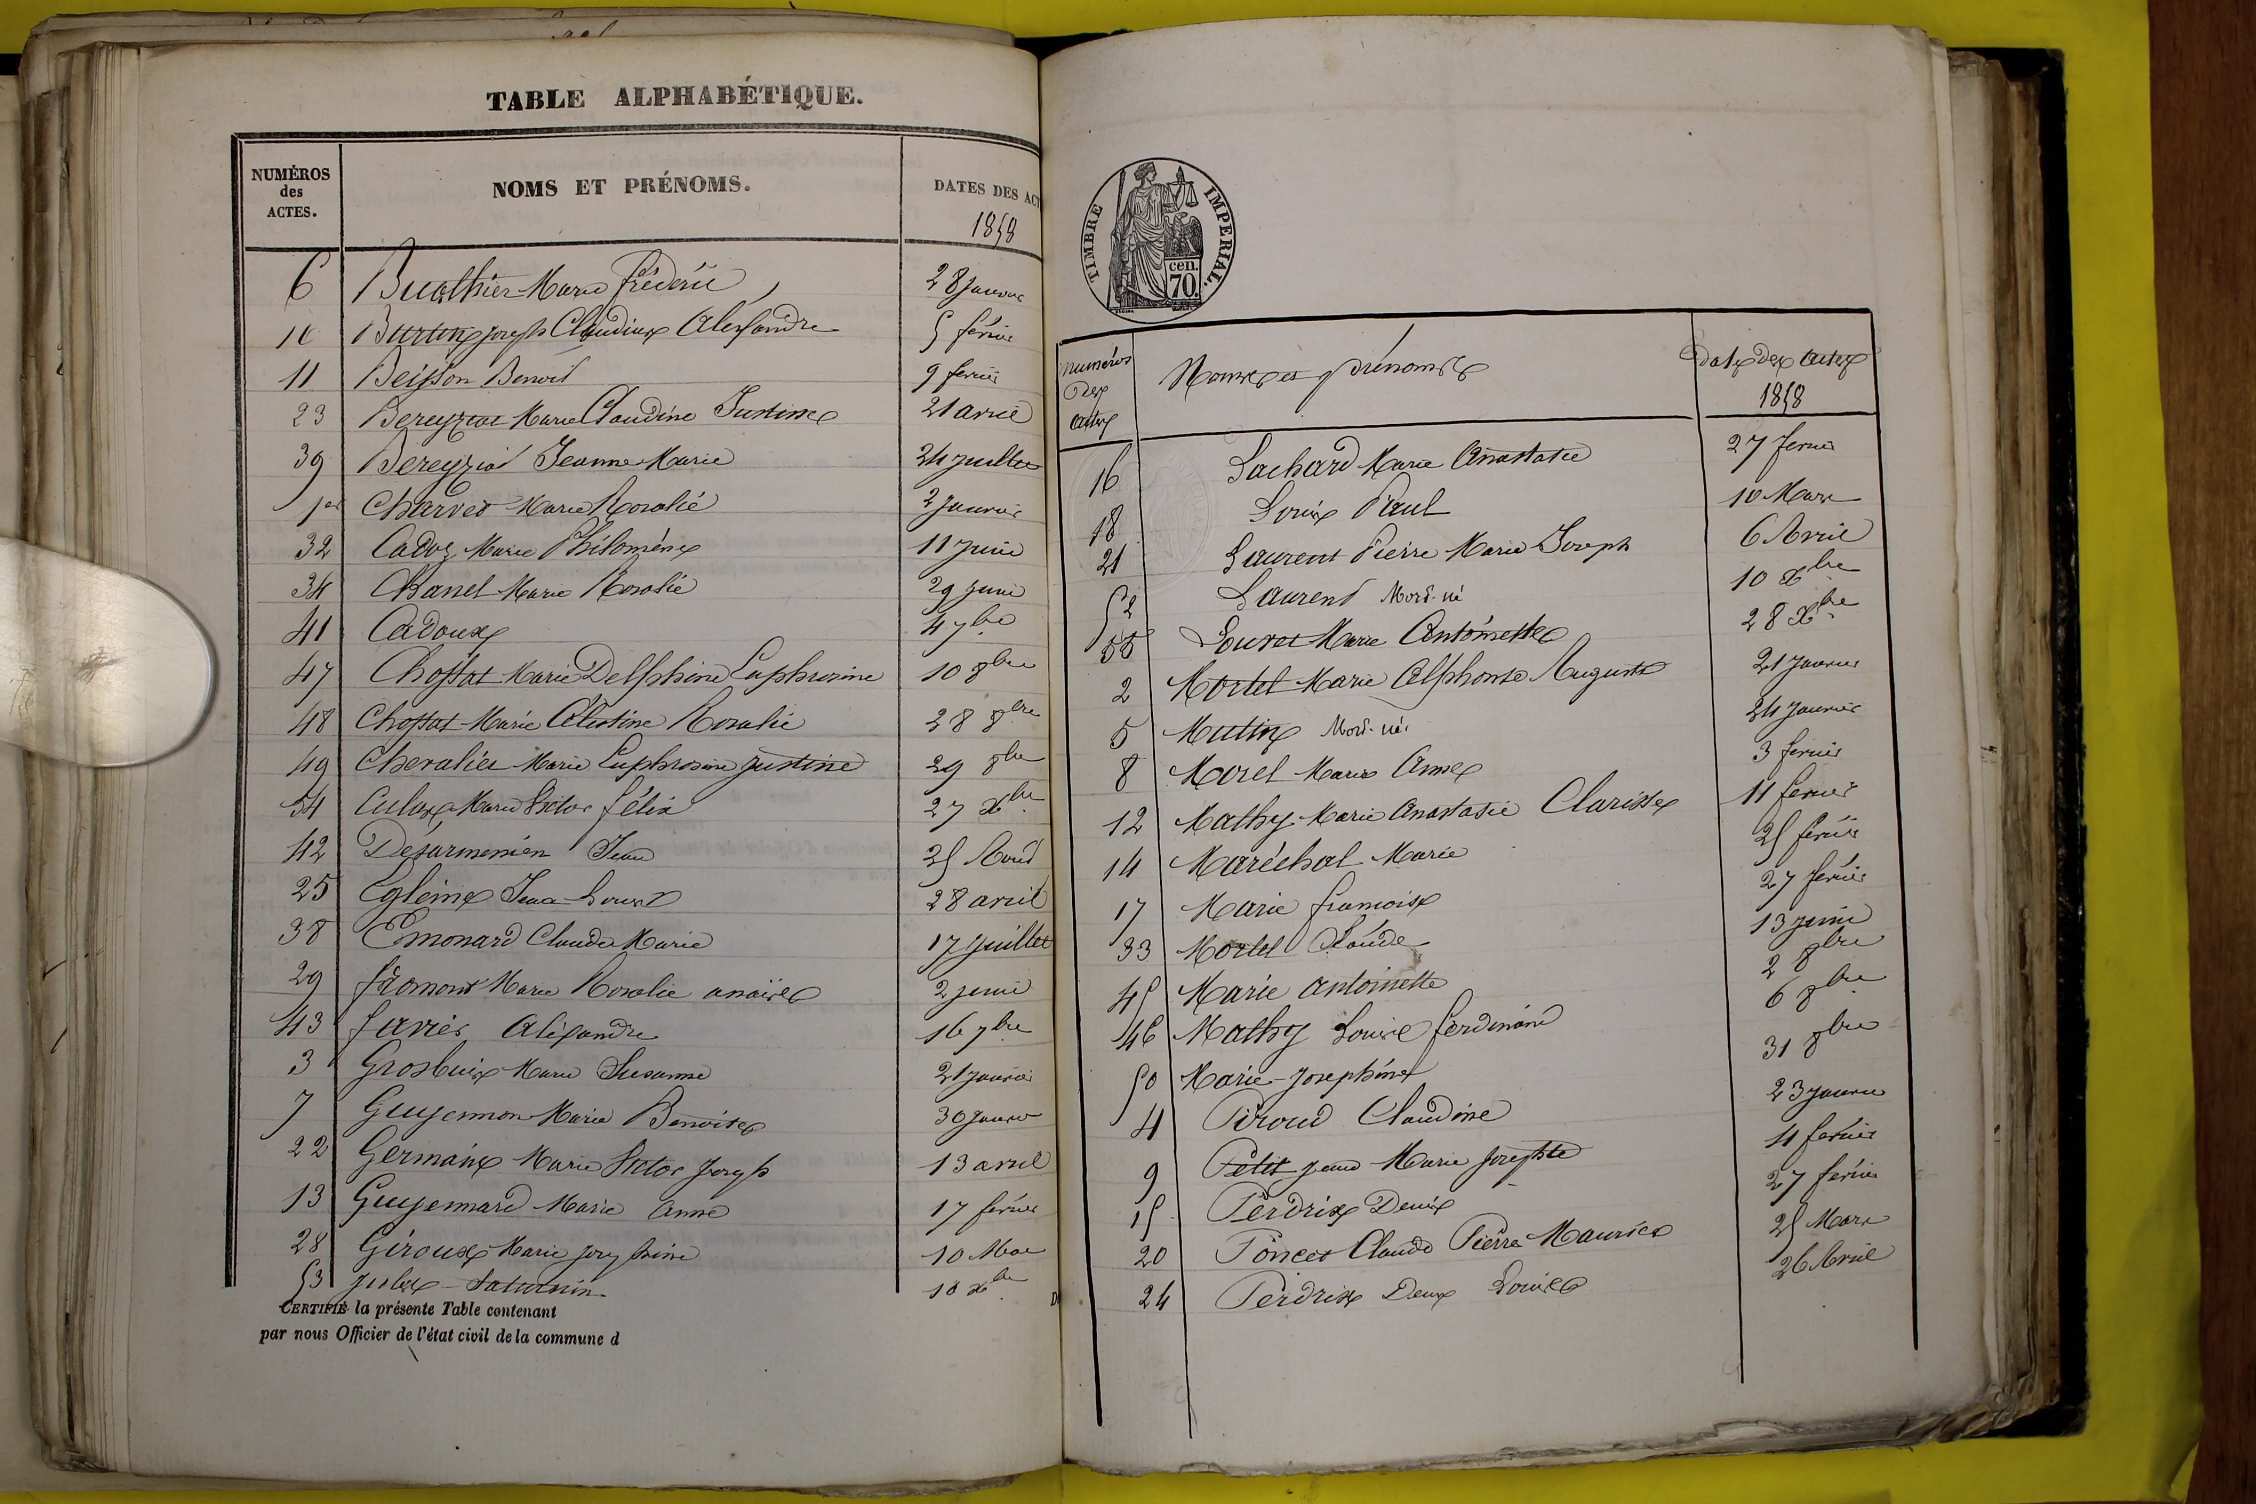 TABLE ALPHABÉTIQUE.
NUMÉROS des ACTES.
NOMS ET PRÉNOMS.
DATES DES ACT
1858
6 Buathier Marie Fréderic 28 janvier
10 Burtin joseph Claudius Alexandre 5 février
11 Beisson Benoit 9 fevrier
23 Bereyziat Marie Claudine Justine 21 avril
39 Bereyziat Jeanne Marie 24 juillet
1er Charvet Marie Rosalie 2 janvier
32 Cadoz Marie Philomène 11 juin
34 Chanel Marie Rosalie 29 juin
41 Cadoux 4 7bre
47 Chossat Marie Delphine Euphrosine 10 8bre
48 Chossat Marie Célestine Rosalie 28 8bre
49 Chevalier Marie Euphrosine justine 29 8bre
54 Culax Marie Victor félix 27 Xbre
42 Désarmenien Jean 25 Aout
25 Egleine Jean Louis 28 avril
38 Emonard Claude Marie 17 juillet
29 fromont Marie Rosalie anaïse 2 juin
43 favier Alexandre 16 7bre
3 Grosbuis Marie Susanne 21 janvier
7 Guyennon Marie Benoite 30 janvier
22 Germain Marie Victor joseph 13 avril
13 Guyennard Marie Anne 17 février
28 Giroux Marie josephine 10 Mai
53 jules Saturnin 10 Xbre
CERTIFIÉ la présente Table contenant
par nous Officier de l'état civil de la commune d
TIMBRE IMPERIAL.
cen. 70.
Numéros Des actes
Noms et prénoms
Dates Des actes
1858
16 Lachard Marie Anastasie 27 fevrier
18 Louis Paul 10 Mars
21 Laurent Pierre Marie Joseph 6 Avril
52 Laurent Mort-né 10 Xbre
55 Louvet Marie Antoinette 28 Xbre
2 Mortel Marie Alphonse Auguste 21 janvier
5 Mutin Mort-né. 24 janvier
8 Morel Marie Anne 3 fevrier
12 Mathy Marie Anastasie Clarisse 11 fevrier
14 Maréchal Marie 25 février
17 Marie francoise 27 février
33 Mortel Claude 13 juin
45 Marie Antoinette 2 8bre
46 Mathy Louise ferdinand 6 8bre
50 Marie-josephine 31 8bre
4 Piroud Claudine 23 janvier
9 Petit jean Marie josephte 4 février
15 Perdrix Denis 27 février
20 Poncet Claude Pierre Maurice 25 Mars
24 Perdrix Denis Louise 26 Avril